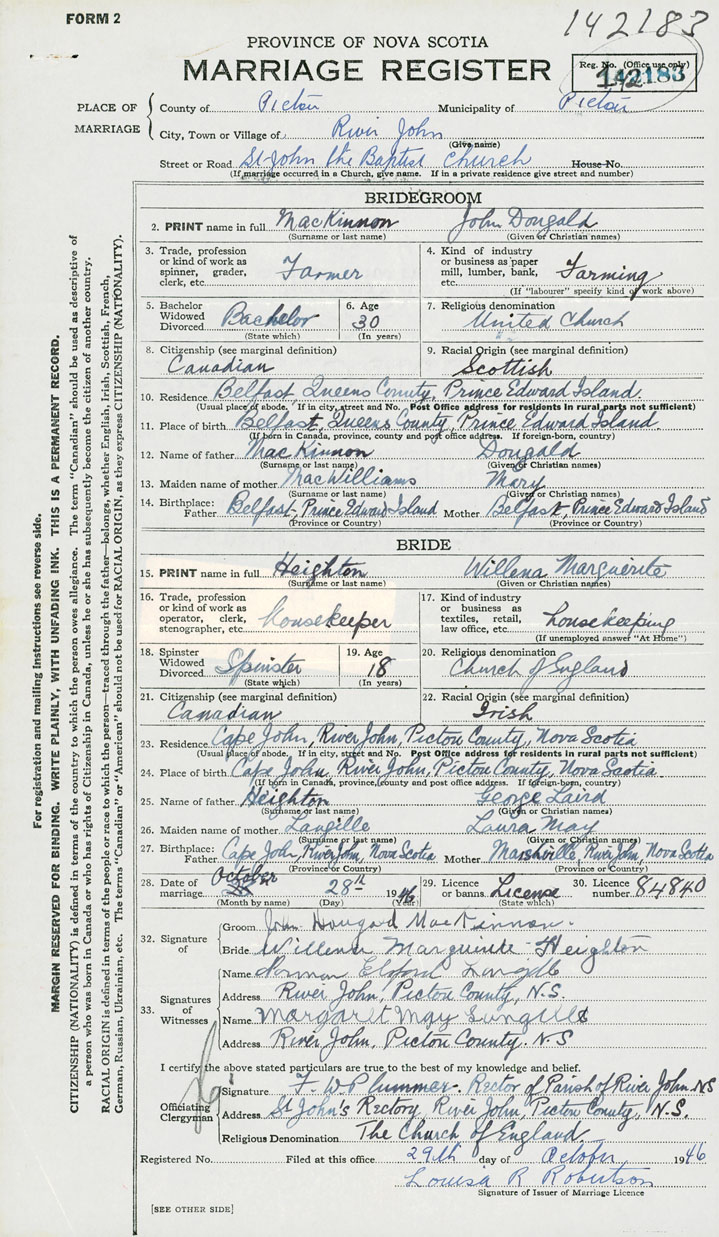 FORM 2
142183
PROVINCE OF NOVA SCOTIA
MARRIAGE REGISTER
Reg. No. (Office use only)
142183
PLACE OF MARRIAGE
County of Pictou Municipality of Pictou
City, Town or Village of River John
(Give name)
Street or Road St. John the Baptist Church House No.
(If marriage occurred in a Church, give name. If in a private residence give street and number)
BRIDEGROOM
2. PRINT name in full MacKinnon John Dougald
(Surname or last name) (Given or Christian names)
3. Trade, profession or kind of work as spinner, grader, clerk, etc. Farmer
4. Kind of industry or business as paper mill, lumber, bank, etc. Farming
(If "labourer" specify kind of work above)
5. Bachelor Widowed Divorced Bachelor
(State which)
6. Age 30
(In years)
7. Religious denomination
United Church
8. Citizenship (see marginal definition)
Canadian
9. Racial Origin (see marginal definition)
Scottish
10. Residence Belfast, Queens County, Prince Edward Island
(Usual place of abode. If in city, street and No. Post Office address for residents in rural parts not sufficient)
11. Place of birth Belfast, Queens County, Prince Edward Island
(If born in Canada, province, county and post office address. If foreign-born, country)
12. Name of father MacKinnon Dougald
(Surname or last name) (Given or Christian names)
13. Maiden name of mother MacWilliams Mary
(Surname or last name) (Given or Christian names)
14. Birthplace: Father Belfast, Prince Edward Island Mother Belfast, Prince Edward Island
(Province or Country) (Province or Country)
BRIDE
15. PRINT name in full Heighton Willena Marguerite
(Surname or last name) (Given or Christian names)
16. Trade, profession or kind of work as operator, clerk, stenographer, etc. housekeeper
17. Kind of industry or business as textiles, retail, law office, etc. housekeeping
(If unemployed answer "At Home")
18. Spinster Widowed Divorced Spinster
(State which)
19. Age 18
(In years)
20. Religious denomination
Church of England
21. Citizenship (see marginal definition)
Canadian
22. Racial Origin (see marginal definition)
Irish
23. Residence Cape John, River John, Pictou County, Nova Scotia
(Usual place of abode. If in city, street and No. Post Office address for residents in rural parts not sufficient)
24. Place of birth Cape John, River John, Pictou County, Nova Scotia
(If born in Canada, province, county and post office address. If foreign-born, country)
25. Name of father Heighton George Laird
(Surname or last name) (Given or Christian names)
26. Maiden name of mother Langille Laura May
(Surname or last name) (Given or Christian names)
27. Birthplace: Father Cape John, River John, Nova Scotia Mother Marshville, River John, Nova Scotia
(Province or Country) (Province or Country)
28. Date of marriage October 28th 1946
(Month by name) (Day) (Year)
29. Licence or banns License
(State which)
30. Licence number 84840
32. Signature of
Groom John Dougald MacKinnon.
Bride Willena Marguerite Heighton
33. Signatures of Witnesses
Name Norman Langille
Address River John, Pictou County, N.S.
Name Margaret May Langille
Address River John, Pictou County. N.S
I certify the above stated particulars are true to the best of my knowledge and belief.
Officiating Clergyman
Signature F. W. Plummer - Rector of Parish of River John, N.S
Address St John's Rectory, River John, Pictou County, N.S.
Religious Denomination The Church of England
Registered No. Filed at this office 29th day of October 1946
Louisa R Robertson
Signature of Issuer of Marriage Licence
[SEE OTHER SIDE]
For registration and mailing instructions see reverse side.
MARGIN RESERVED FOR BINDING. WRITE PLAINLY, WITH UNFADING INK. THIS IS A PERMANENT RECORD.
CITIZENSHIP (NATIONALITY) is defined in terms of the country to which the person owes allegiance. The term "Canadian" should be used as descriptive of
a person who was born in Canada or who has rights of Citizenship in Canada, unless he or she has subsequently become the citizen of another country.
RACIAL ORIGIN is defined in terms of the people or race to which the person—traced through the father—belongs, whether English, Irish, Scottish, French,
German, Russian, Ukrainian, etc. The terms "Canadian" or "American" should not be used for RACIAL ORIGIN, as they express CITIZENSHIP (NATIONALITY).